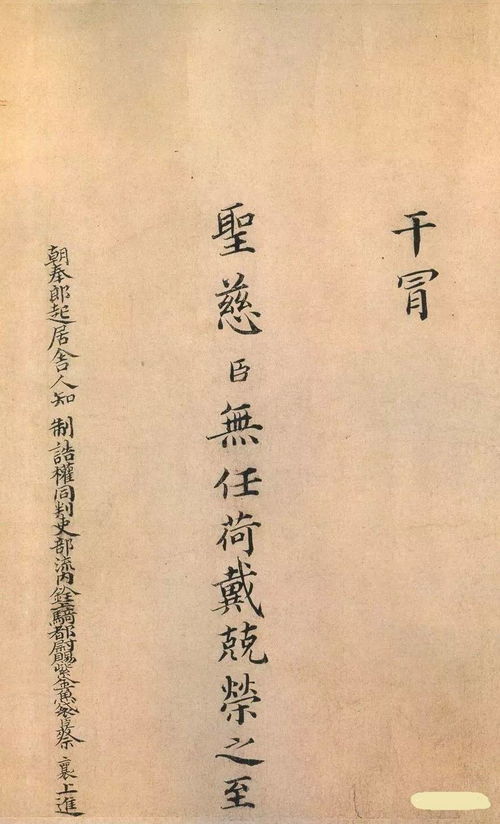 干冒
聖慈臣無任荷戴兢榮之至
朝奉郎起居舍人知 制誥權同判吏部流內銓騎都尉賜紫金魚袋臣蔡 襄 上進